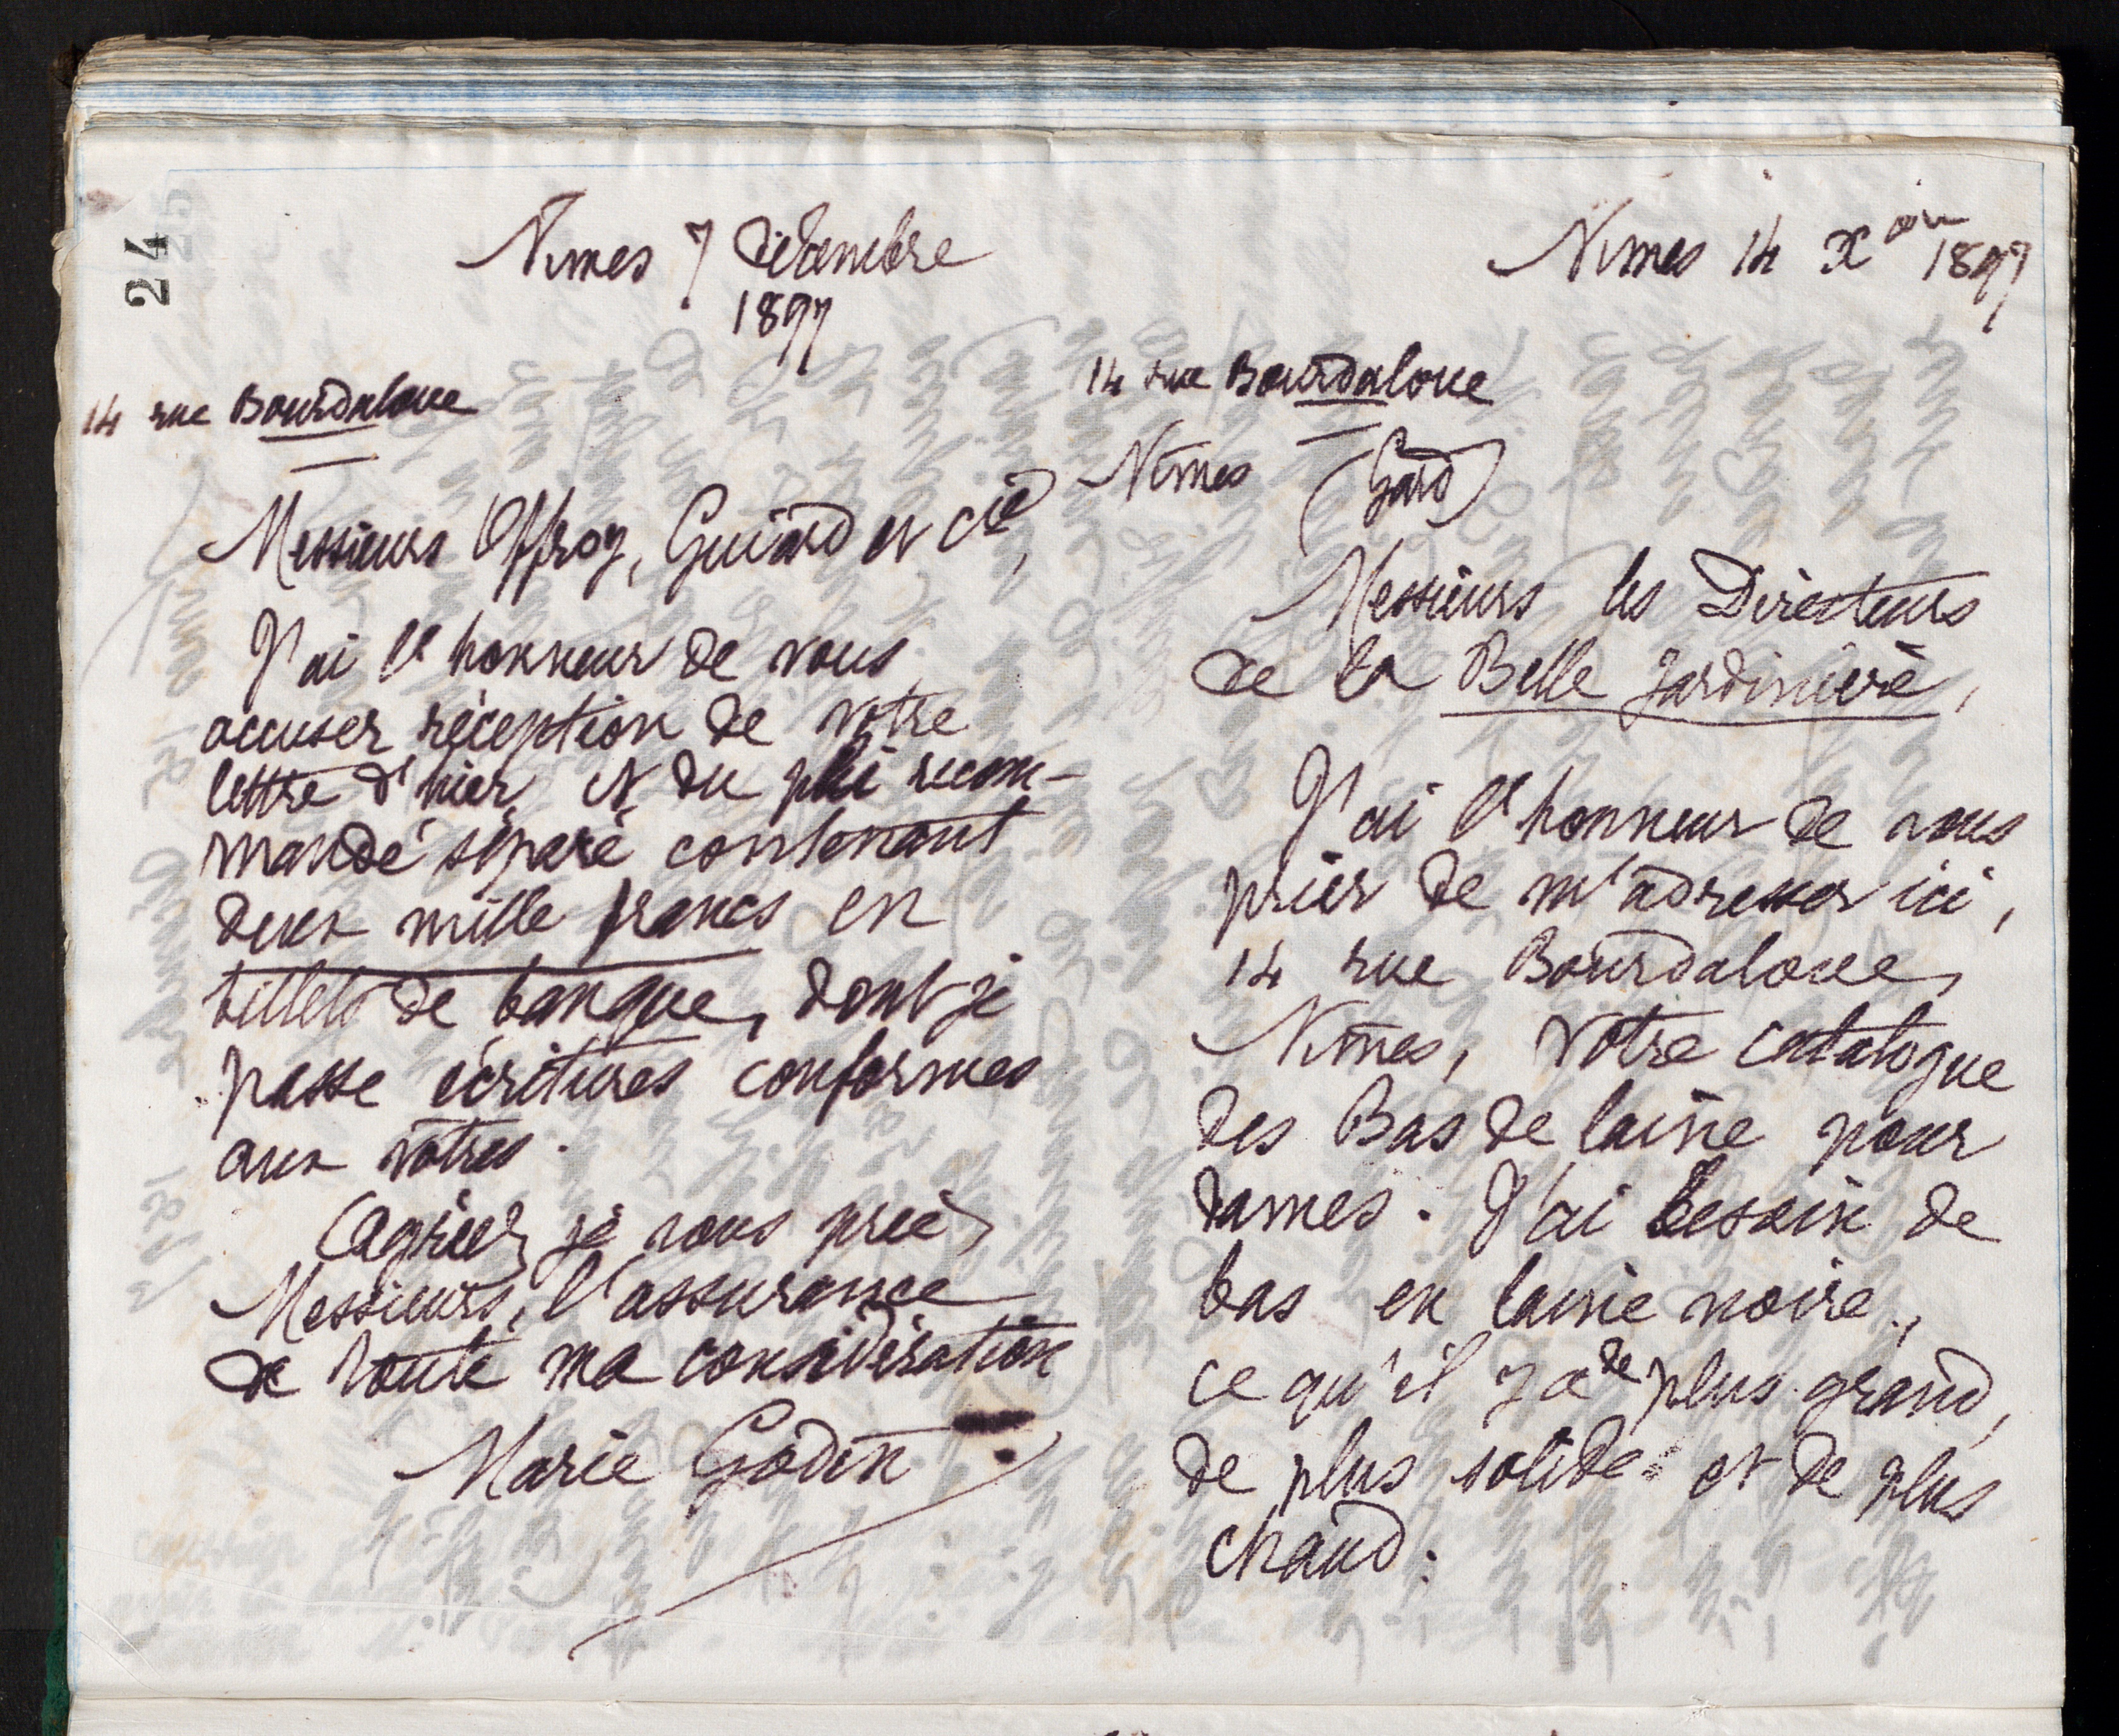 24
Nimes 7 décembre
1897
14 rue Bourdaloue
Messieurs Offroy, Guiard et Cie,
J'ai l'honneur de vous
accuser réception de votre
lettre d'hier, et du pli recom-
mandé séparé contenant
deux mille francs en
billets de banque, dont je
passe écritures conformes
aux vôtres.
Agréez, je vous prie,
Messieurs, l'assurance
de toute ma considération
Marie Godin
Nimes 14 Xbre 1897
14 rue Bourdaloue
Nîmes (Gard)
Messieurs les Directeurs
de la Belle Jardinière,
J'ai l'honneur de vous
prier de m'adresser ici,
14 rue Bourdaloue,
Nîmes, votre catalogue
des Bas de laine pour
dames. J'ai besoin de
bas en laine noire,
ce qu'il y a de plus grand,
de plus solide et de plus
chaud.